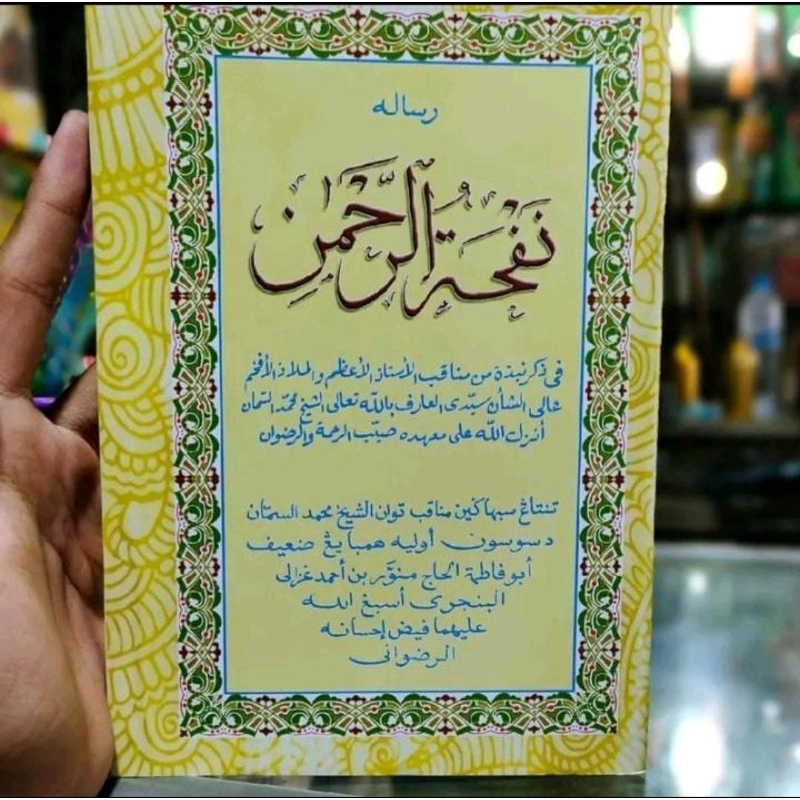 رساله
نفحة الرحمن
فى ذكر نبذة من مناقب الأستاذ الأعظم والملاذ الأفخم
عالى الشأن سيّدى العارف بالله تعالى الشيخ محمّد السّمان
أنزل الله على معهده صيّب الرحمة والرضوان
تنتاڠ سبهاݢين مناقب توان الشيخ محمد السمّان
دسوسون أوليه همبا يڠ ضعيف
أبو فاطمة الحاج منوّر بن أحمد غزالى
البنجرى أسبغ الله
عليهما فيض إحسانه
الرضوانى